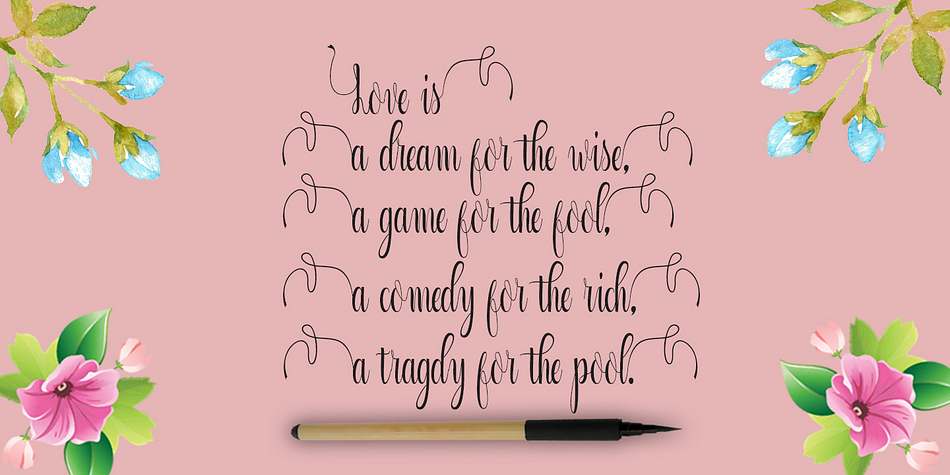 Love is
a dream for the wise,
a game for the fool,
a comedy for the rich,
a tragdy for the pool.